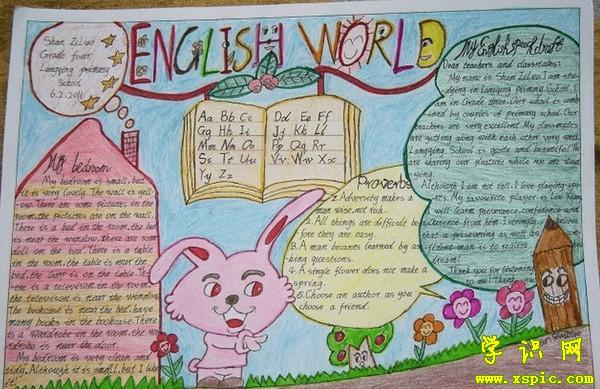 ENGLISH WORLD
Shan ZiLuo
Grade four
Langqing primary
School
6.2.2011
Aa Bb Cc
Gg Hh Ii
Mm Nn Oo
Ss Tt Uu
Yy Zz
Dd Ee Ff
Jj Kk Ll
Pp Qq Rr
Vv Ww Xx
My bedroom
My bedroom is small, but
it is very lovely. The wall is yell-
ow. There are some pictures in the
room. the pictures are on the wall.
There is a bed in the room. the bed
is near the window. There are some
doll on the bed. There is a table
in the room. the table is near the
bed. the lamp is on the table. The
re is a television in the room.
the television is near the window
The bookcase is near the bed. have
many books on the bookcase. There
is a wardrobe in the room. the wa
rdrobe is near the door.
My bedroom is very clean and
tidy. Although it is small. but I like
it!
Proverbs
1. Adversity makes a
man wise, not rich.
2. All things are difficult be
fore they are easy.
3. A man becomes learned by as
king questions.
4. A single flower does not make a
spring.
5. Choose an author as you
choose a friend.
My English speech draft
Dear teachers and classmates:
My name is Shan ZiLuo. I am stu
dying in Langqing primary School. I
am in Grade three. Our school is comb
ined by couples of primary school. Our
teachers are very excellent. My classmates
are getting along well each other very well.
Langqing School is quite and beautiful. We
are sharing our pleasure while we are stud
ying.
Although I am not tall. I love playing spo
rts. My favourite player is Liu Xiang
I will learn perverance, confidence and
from him. I strongly
that a persevering as well as
man is to realize
dream!
Thank you for listening
to me! Thank
学识网
www.xspic.com